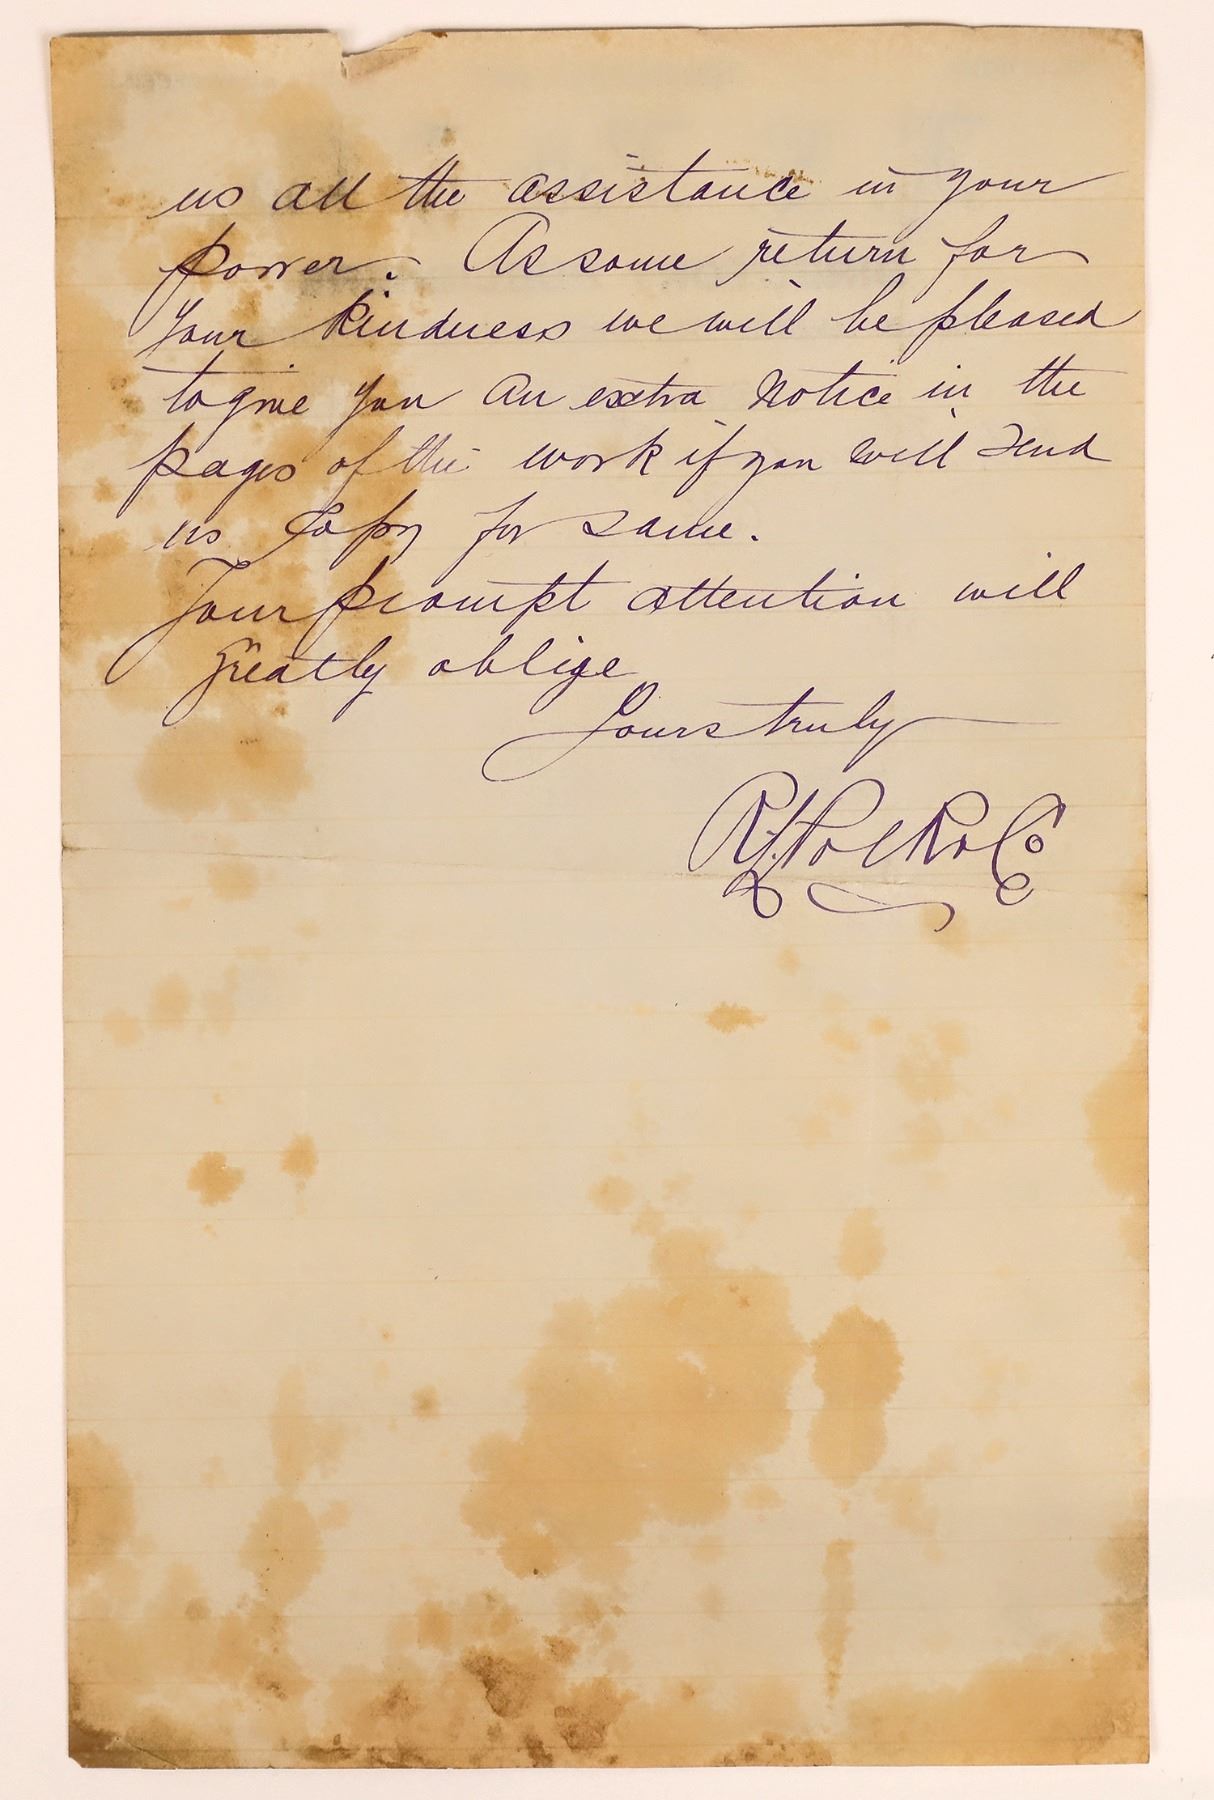 us all the assistance in your
power. As some return for
your kindness we will be pleased
to give you an extra Notice in the
pages of the work if you will send
us Copy for same.
Your prompt attention will
greatly oblige
Yours truly
R L Polk & Co